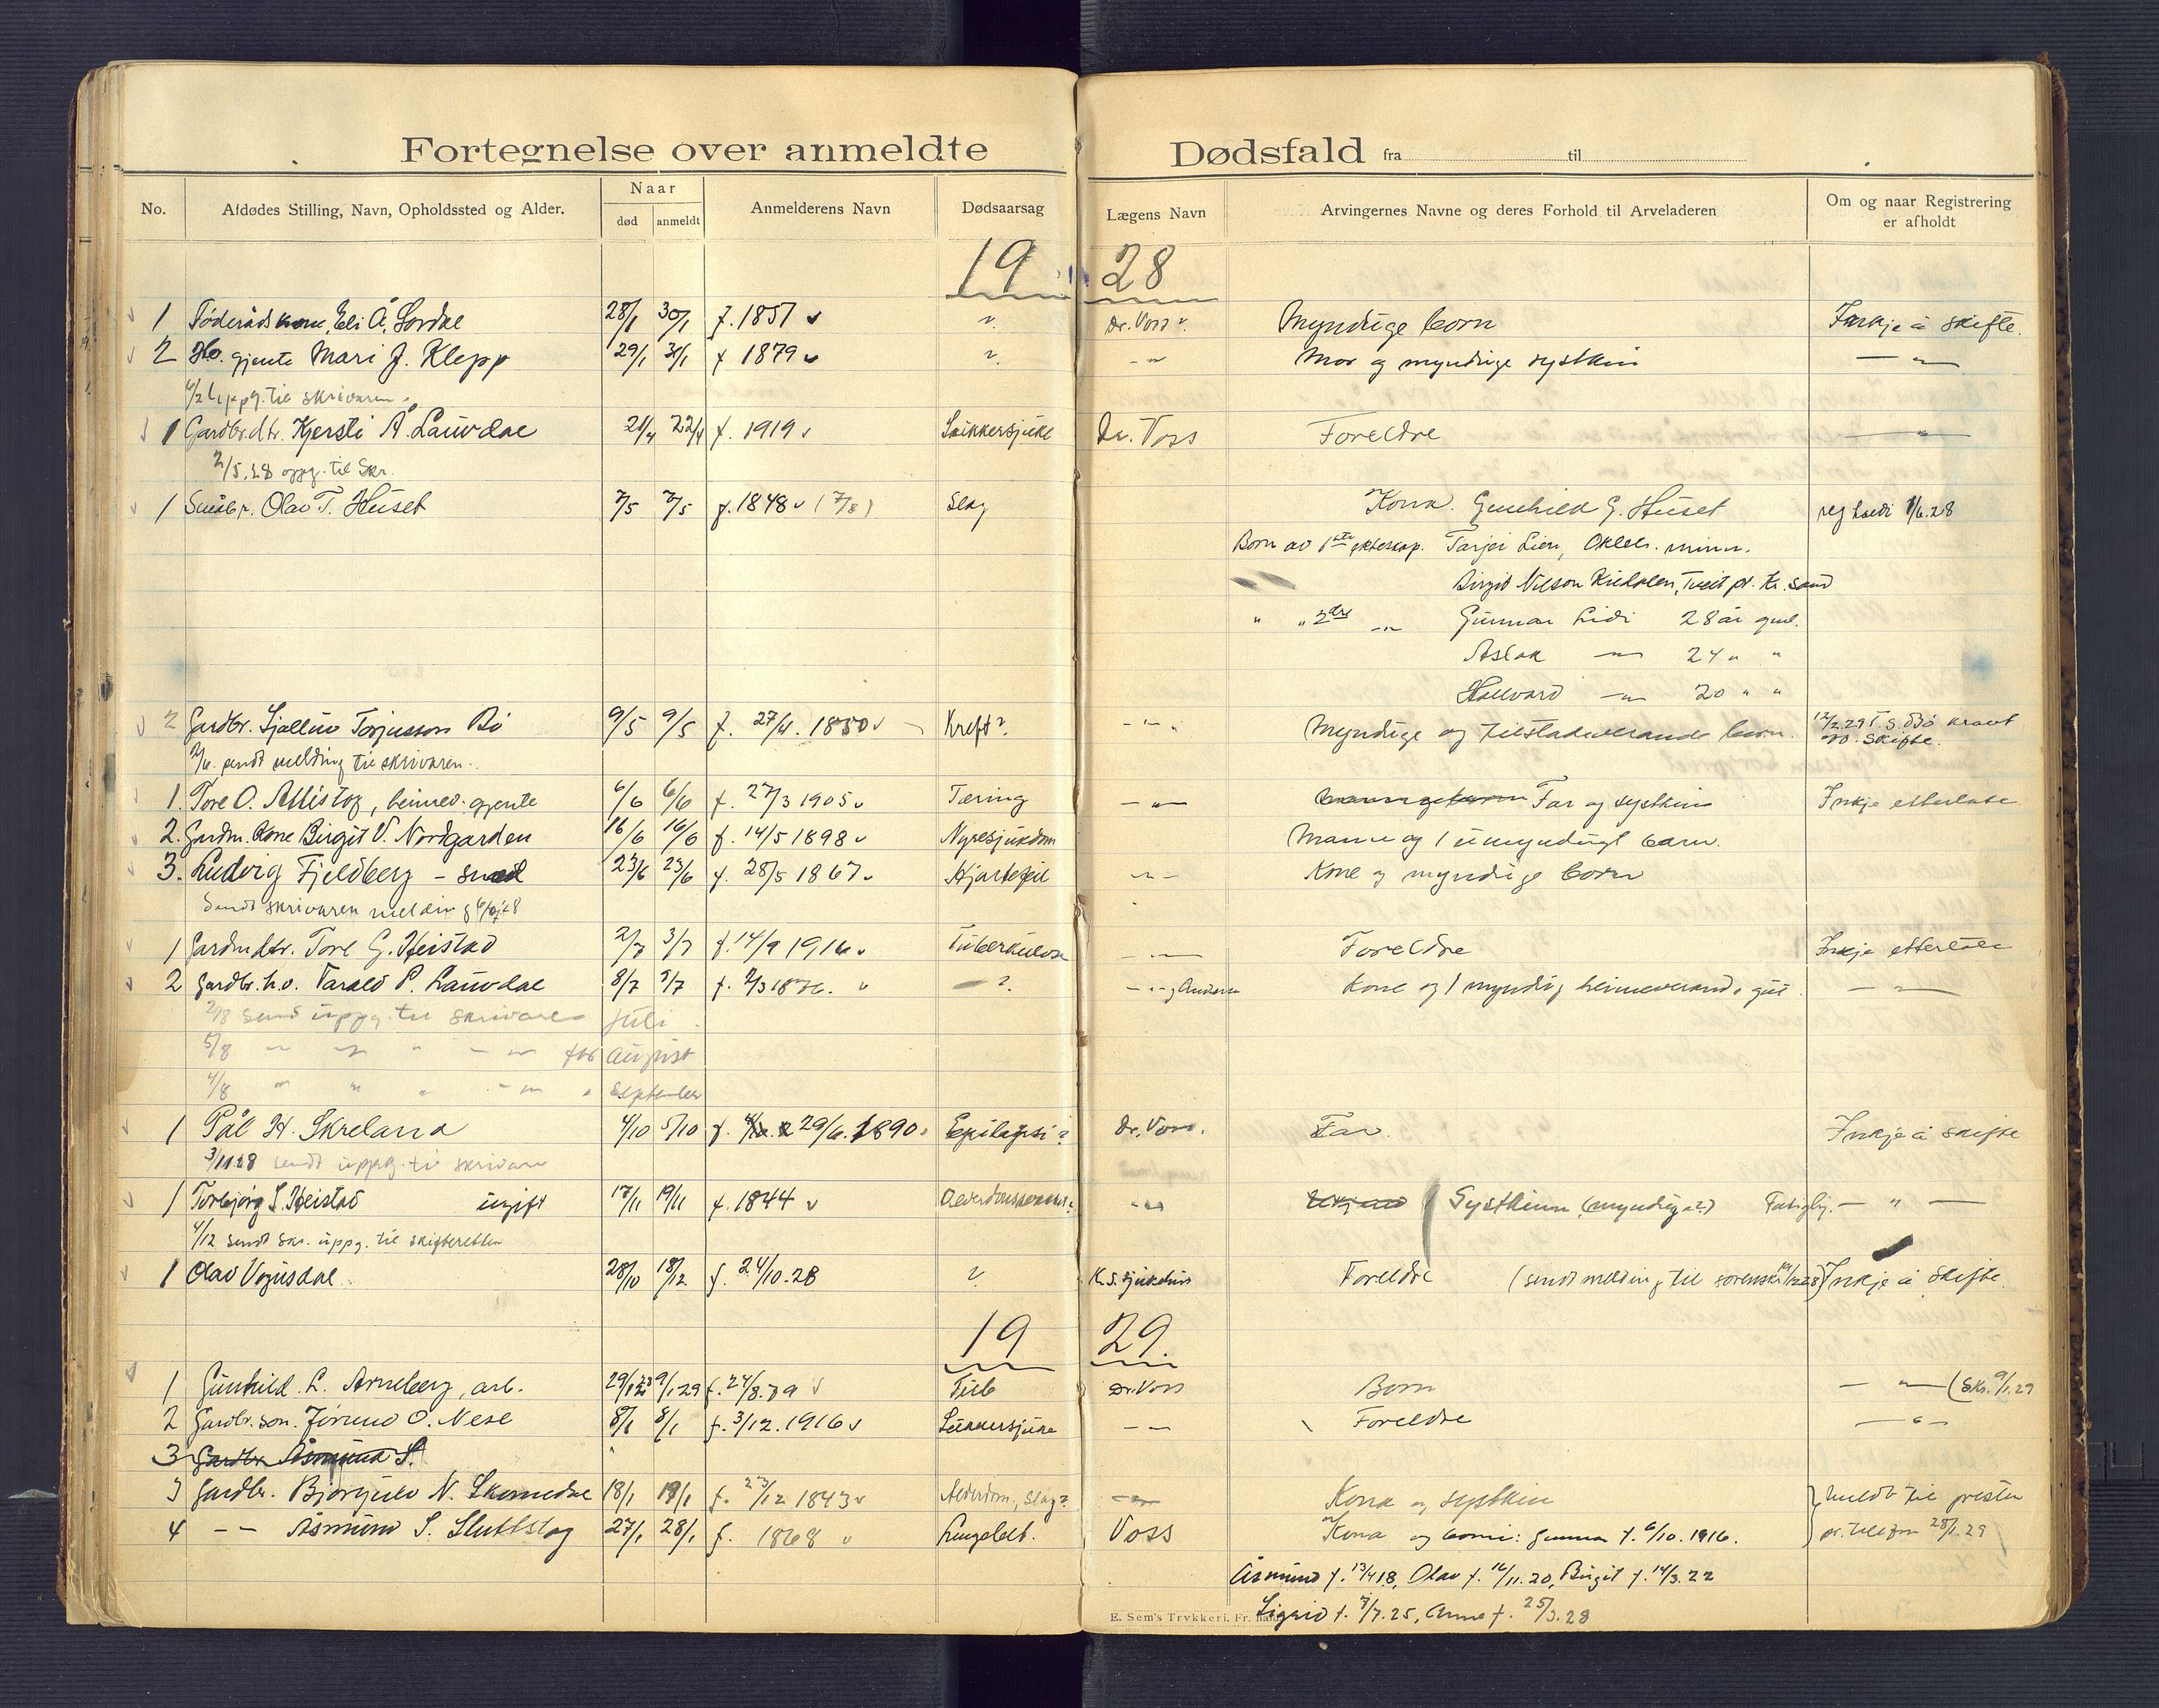 Fortegnelse over anmeldte Dødsfald fra til
No. Afdødes Stilling, Navn, Opholdssted og Alder. Naar død anmeldt Anmelderens Navn Dødsaarsag Lægens Navn Arvingernes Navne og deres Forhold til Arveladeren Om og naar Registrering er afholdt
19 28
1 Føderådskone, Eli Å. Lordal 28/1 30/1 f. 1851 ? Dr. Voss ? Myndige born Inkje å skifte.
2 Ho. gjente Mari J. Klepp 29/1 31/1 f 1879 ? -"- Mor og myndige systkin — " —
4/2 uppg. til skrivaren.
1 Gardbr.dtr. Kjersti Å. Lauvdal 21/4 22/4 f. 1919 Sukkersjuke Dr. Voss Foreldre — " —
2/5.28 oppg. til Skr.
1 Småbr. Olav T. Huset 7/5 7/5 f. 1848 (7/8) Slag Kona. Gunhild G. Huset reg 1/6.28
Born av 1ste ekteskap. Tarjei Lien, Okleh. minn.
Birgit Nilson Tveit pr. Kr. sand
" " 2dre -"- Gunnar Lidi 28 år gml.
Aslak -"- 24 " "
Hallvard -"- 20 " "
2 Gardbr. Torjusson Bø 9/5 9/5 f. 27/4. 1850 Kreft? -"- Myndige og tilstadeverande born. 12/2.29 T. S. Bø kravt off. Skifte.
2/6. sendt melding til skrivaren.
1. Tore O. Allistog, heimev. gjente 6/6 6/6 f. 27/3 1905 Tæring -"- Far og systkin Inkje etterlate
2. Gardm. kone Birgit V. Nordgarden 16/6 16/6 f. 14/5 1898 Nyresjukdom Mann og 1 umyndigt barn.
3. Ludvig Fjeldberg - smed 23/6 23/6 f. 28/5 1867 Hjartefeil -"- Kone og myndige born
Sendt skrivaren melding
1 Gardm.dtr. Tore G. Heistad 2/7 3/7 f. 14/9 1916 Tuberkulose -"- Foreldre Inkje etterlate
2 Gardbr. h.v. Tarald P. Lauvdal 8/7 9/7 f. 2/3 1876. ? -"- og Andersen Kone og 1 myndig heimeverande gut -"-
2/8 send uppg. til skrivaren juli
5/8 " " " -"- for August
4/8 " " " -"- " September
1 Pål H. Skreland 4/10 5/10 f. 29/6. 1890 Epilepsi? Dr. Voss. Far. Inkje å skifte
3/11 28 sendt uppg. til skrivaren
1 Torbjørg S. Heistad ugift 17/11 19/11 f. 1844 -"- Systkinn (myndige?) Fatiglg. — " —
4/12 sendt skr. uppg. til skifteretten
1 Olav Uppsdal 28/10 18/12 f. 24/10.28 ? K.S. sjukehus Foreldre (sendt melding til sorenskr. Inkje å skifte.
19 29.
1 Gunhild L. Arneberg, arb. 29/12 28 9/1 29 f. 24/8.79 Tub Dr. Voss Born — " — (Skr. 9/1.29
2 Gardbr. son. Jørund O. Nese 8/1 8/1 f. 3/12.1916 Sukkersjuke -"- Foreldre — " —
3 Gardbr. Åsmund S.
3 Gardbr. Bjørgulv N. Skomedal 18/1 19/1 f. 27/12 1843 Alderdom, Slag? -"- Kona og systkin meldt til presten
4 -"- Åsmund S. Sluttstog 27/1 28/1 f. 1868 Lungebet. Voss Kona og born: Gunnar f. 6/10. 1916. pr. telefon 28/1.29
Åsmund f. 13/4 18, Olav f. 16/11.20, Birgit f. 14/3.22
E. Sem's Trykkeri, Fr. hald Sigrid f. 7/7.25, Anne f. 25/3.28